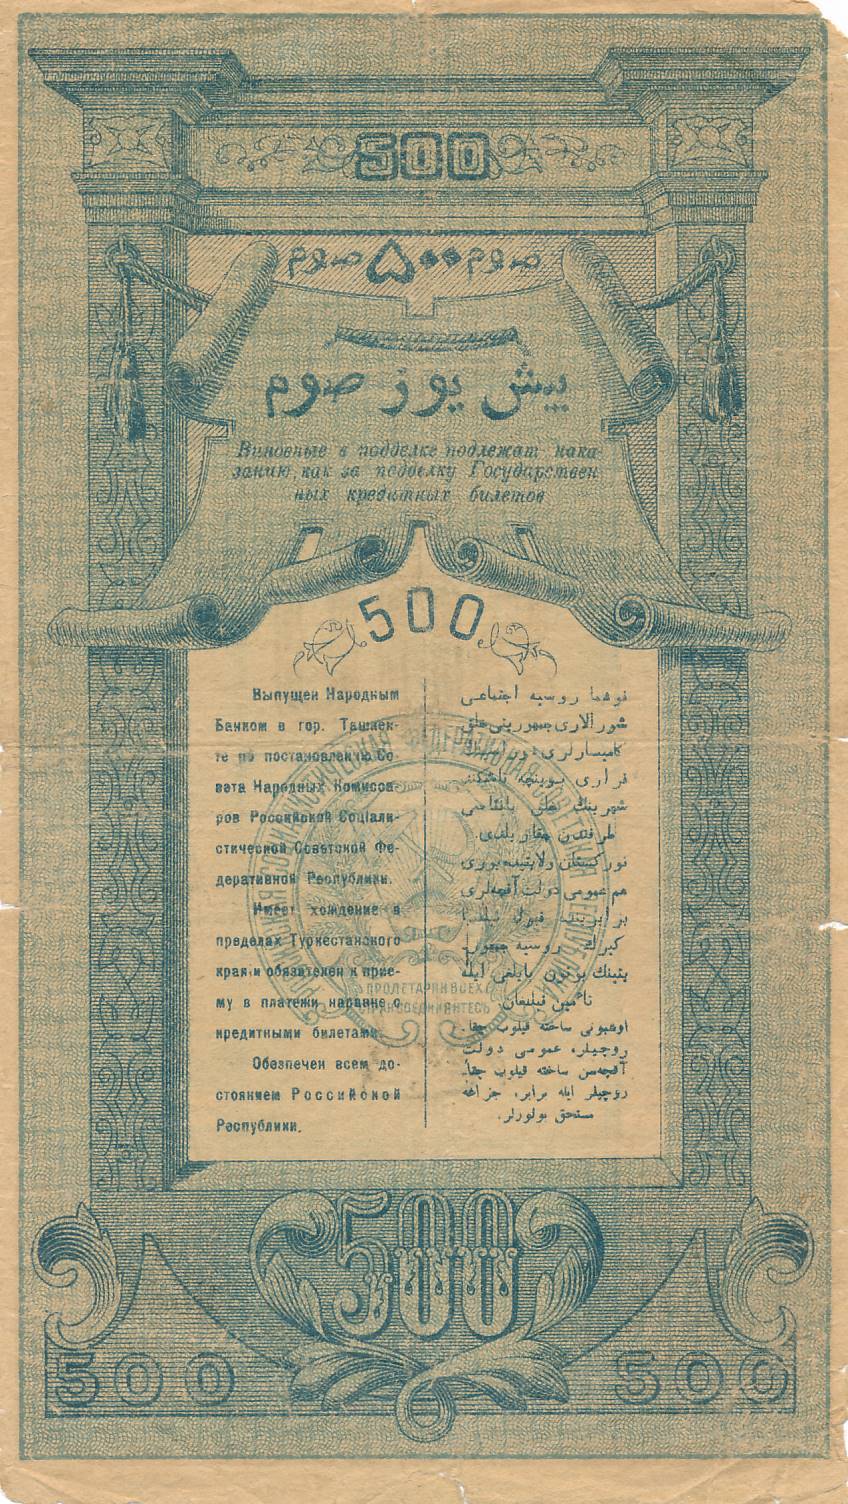 500
صوم ۵۰۰ صوم
بیش یوز صوم
Виновные в подделке подлежат нака-
занию, как за подделку Государствен
ных кредитных билетов
500
Выпущен Народным
Банком в гор. Ташкен-
те по постановлению Со
вета Народных Комисса-
ров Российской Социали-
стической Советской Фе-
деративной Республики.
Имеет хождение в
пределах Туркестанского
края и обязателен к прие-
му в платежи наравне с
кредитными билетами.
Обезпечен всем до-
стоянием Российской
Республики.
روسیه اجتماعی
شورالاری جمهوریتی خلق
کامیسارلری
قراری بوینچه تاشکند
شهرینك خلق بانقاسی
طرفندن چقاریلدی.
تورکستان ولایتیده یوری
هم عمومی دولت آقچهلری
برابرینه قبول
روسیه جمهوریتی
یتینك بوتون بایلغی ایله
تأمین قیلینغان.
اوشبونی ساخته قیلوب چقا
روچیلر، عمومی دولت
آقچهسن ساخته قیلوب چقا
روچیلر ایله برابر، جزاغه
مستحق بولورلر.
РОССІЙСКАЯ СОЦІАЛИСТИЧЕСКАЯ ФЕДЕРАТИВНАЯ СОВѢТСКАЯ РЕСПУБЛИКА
ПРОЛЕТАРІИ ВСЕХ
СТРАН СОЕДИНЯЙТЕСЬ
500
500 500